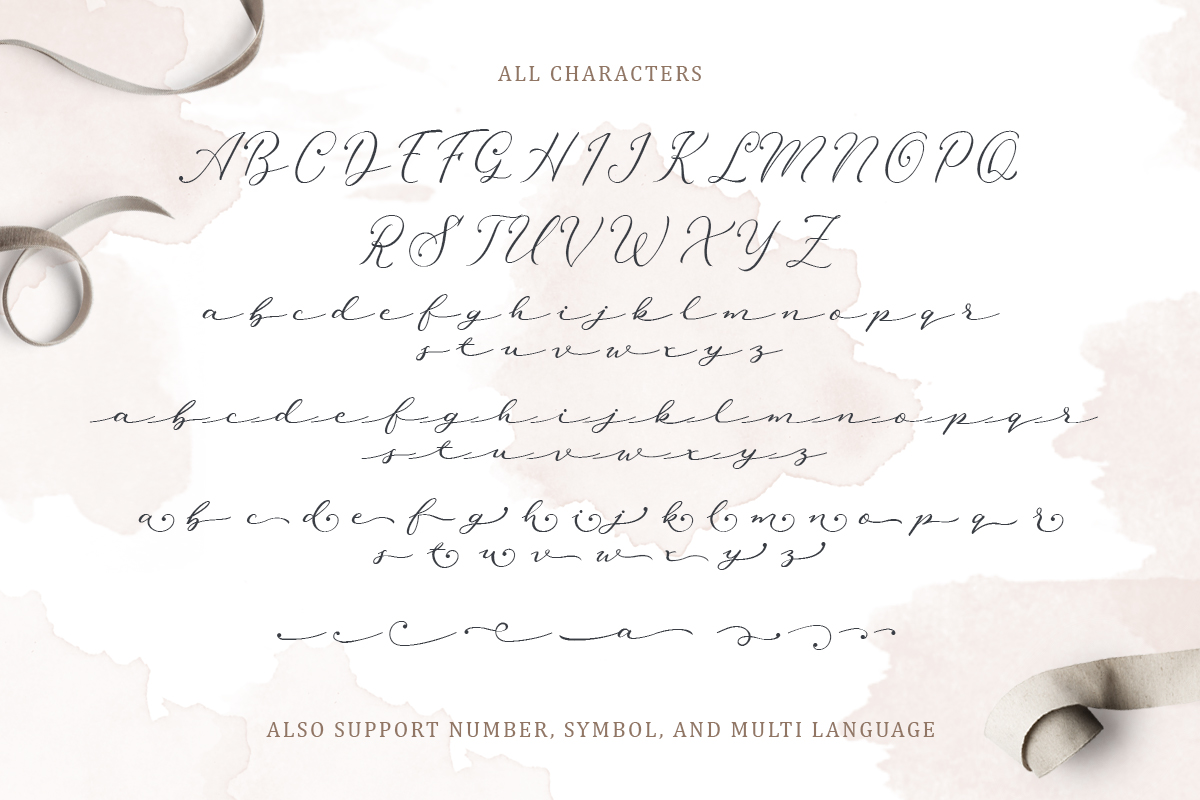 ALL CHARACTERS
A B C D E F G H I J K L M N O P Q
R S T U V W X Y Z
a b c d e f g h i j k l m n o p q r
s t u v w x y z
a b c d e f g h i j k l m n o p q r
s t u v w x y z
a b c d e f g h i j k l m n o p q r
s t u v w x y z
a
ALSO SUPPORT NUMBER, SYMBOL, AND MULTI LANGUAGE